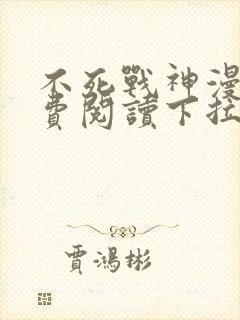 不死戰神漫
費閱讀下拉
賈鴻彬